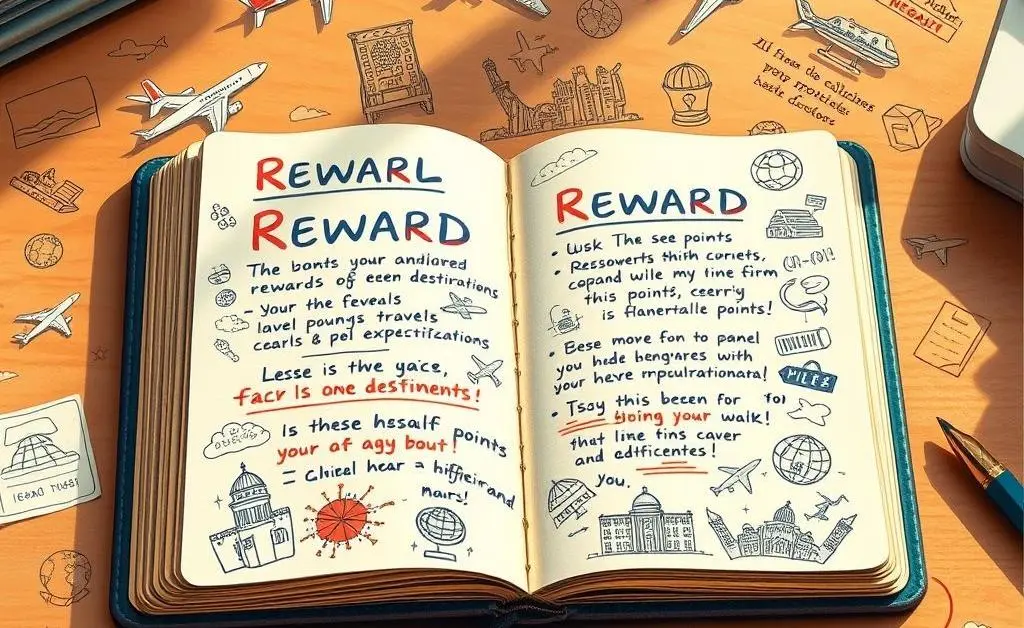 REWARL
REWARD
The bonts your andlored
rewards of eeen destirations
- Your the feveals
lavel poungs travels
cearls & pol expectifzations
Lesse is the yaice,
facr Is one destinents!
Is these hesalf points
your af agy bout!
= Chicel hear = hifficirand
mars!
REWARD
• Lusk The see points
• Ressowerts thith cornets,
copand wille my tine firm
this points, ceerriy
is flanertalle points!
• Eese move fon to panel
you hede bengwares with
your heve mpculrationata!
• Tsoy this becen for
biioing your walk!
that line tins caver
and edtficentes!
you.